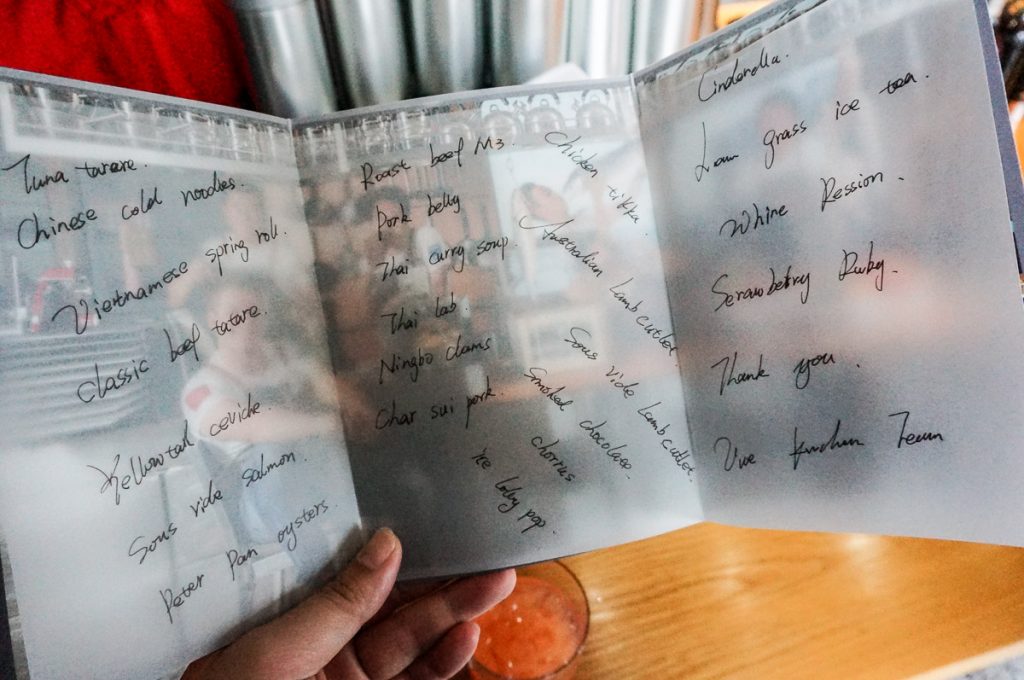 Tuna tatare.
Chinese cold noodles.
Vietnamese spring roll.
Classic beef tatare.
Yellowtail ceviche.
Sous vide salmon.
Peter Pan oysters.
Roast beef M3.
Pork belly
Thai curry soup.
Thai lab.
Ningbo clams
Char sui pork.
Chicken tikka.
Australian Lamb cutlet.
Sous vide Lamb cutlet.
Smoked chocolate.
churros
Ice lolly pop.
Cinderella.
Lem grass ice tea.
Whine Ression.
Strawberry Ruby.
Thank you.
Team